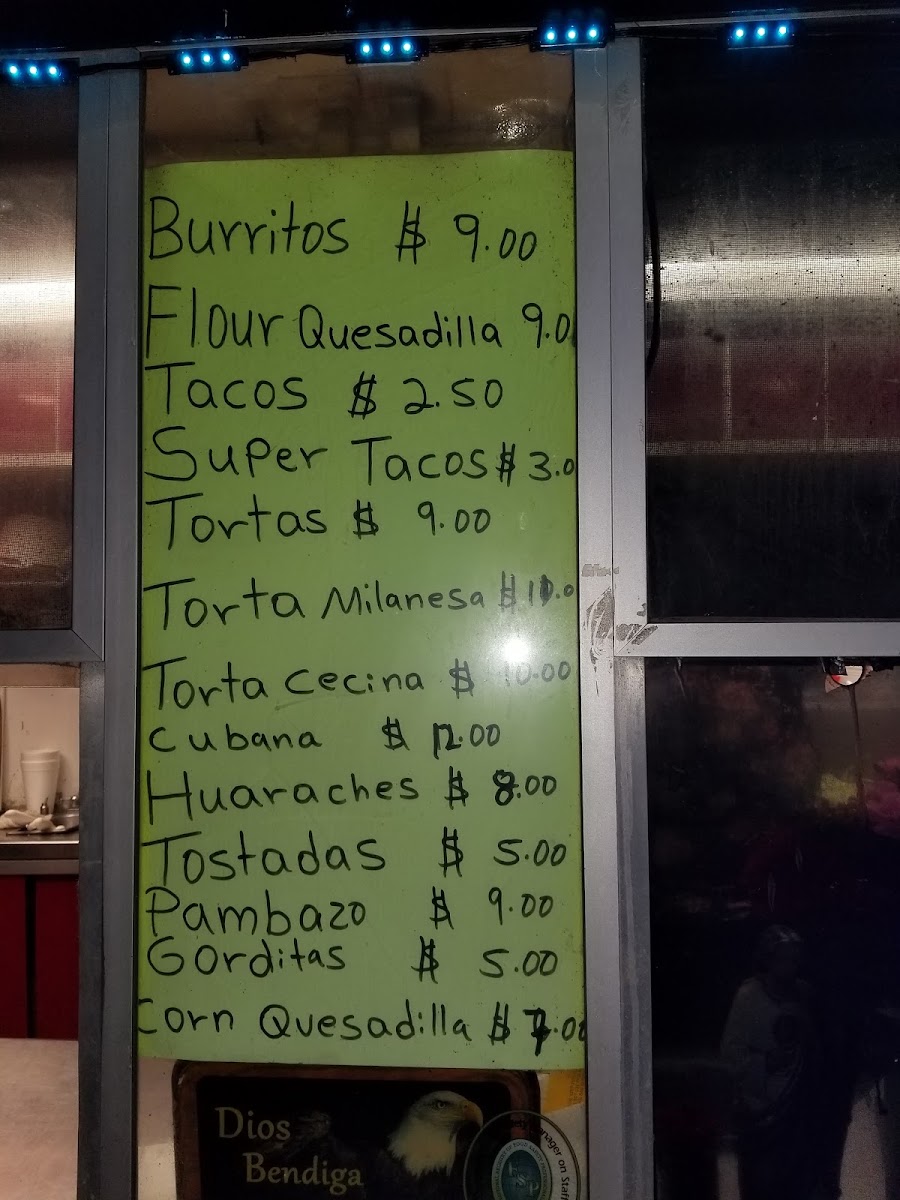 Burritos $ 9.00
Flour Quesadilla 9.0
Tacos $ 2.50
Super Tacos $ 3.0
Tortas $ 9.00
Torta Milanesa $ 11.0
Torta Cecina $ 10.00
Cubana $ 12.00
Huaraches $ 8.00
Tostadas $ 5.00
Pambazo $ 9.00
Gorditas $ 5.00
Corn Quesadilla $ 7.00
Dios
Bendiga
Manager on Staff